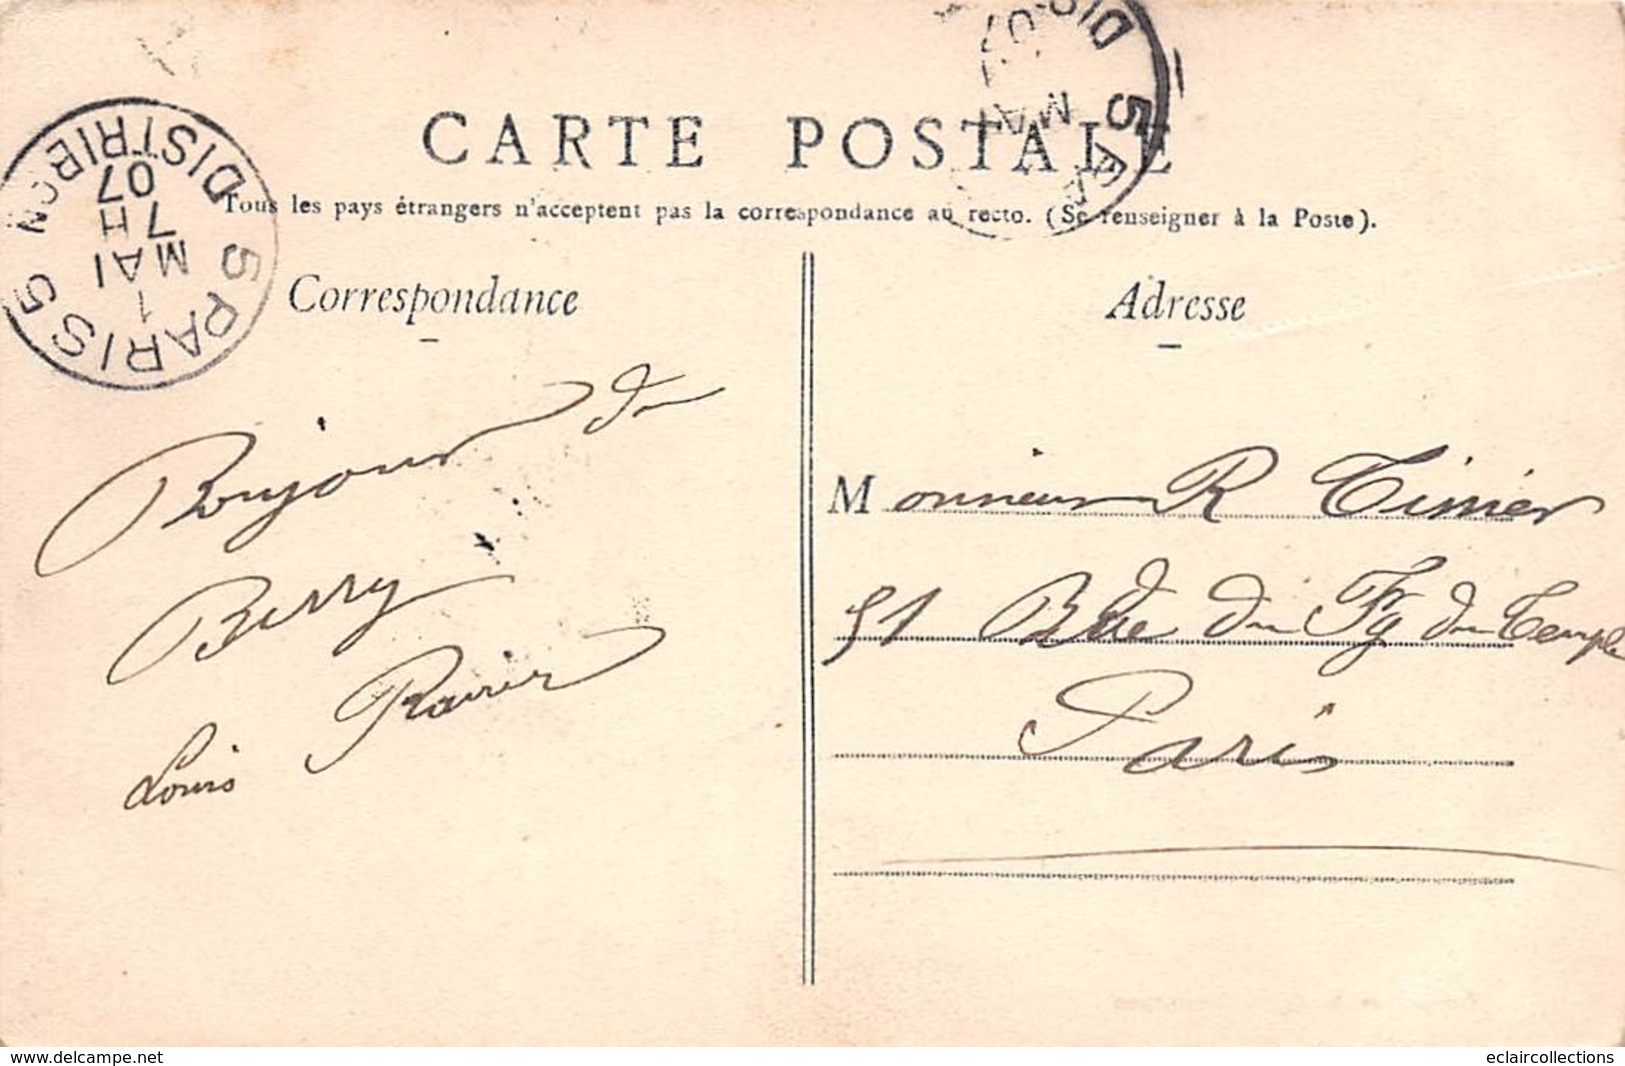 CARTE POSTALE
Tous les pays étrangers n'acceptent pas la correspondance au recto. (Se renseigner à la Poste).
PARIS 5
DISTRIB ON
1
MAI
7H
07
5
5
MA
Correspondance
Bonjour du
Berry
Louis
Adresse
Monsieur R
51 Bde du Fg du Temple
Paris
www.delcampe.net
eclaircollections